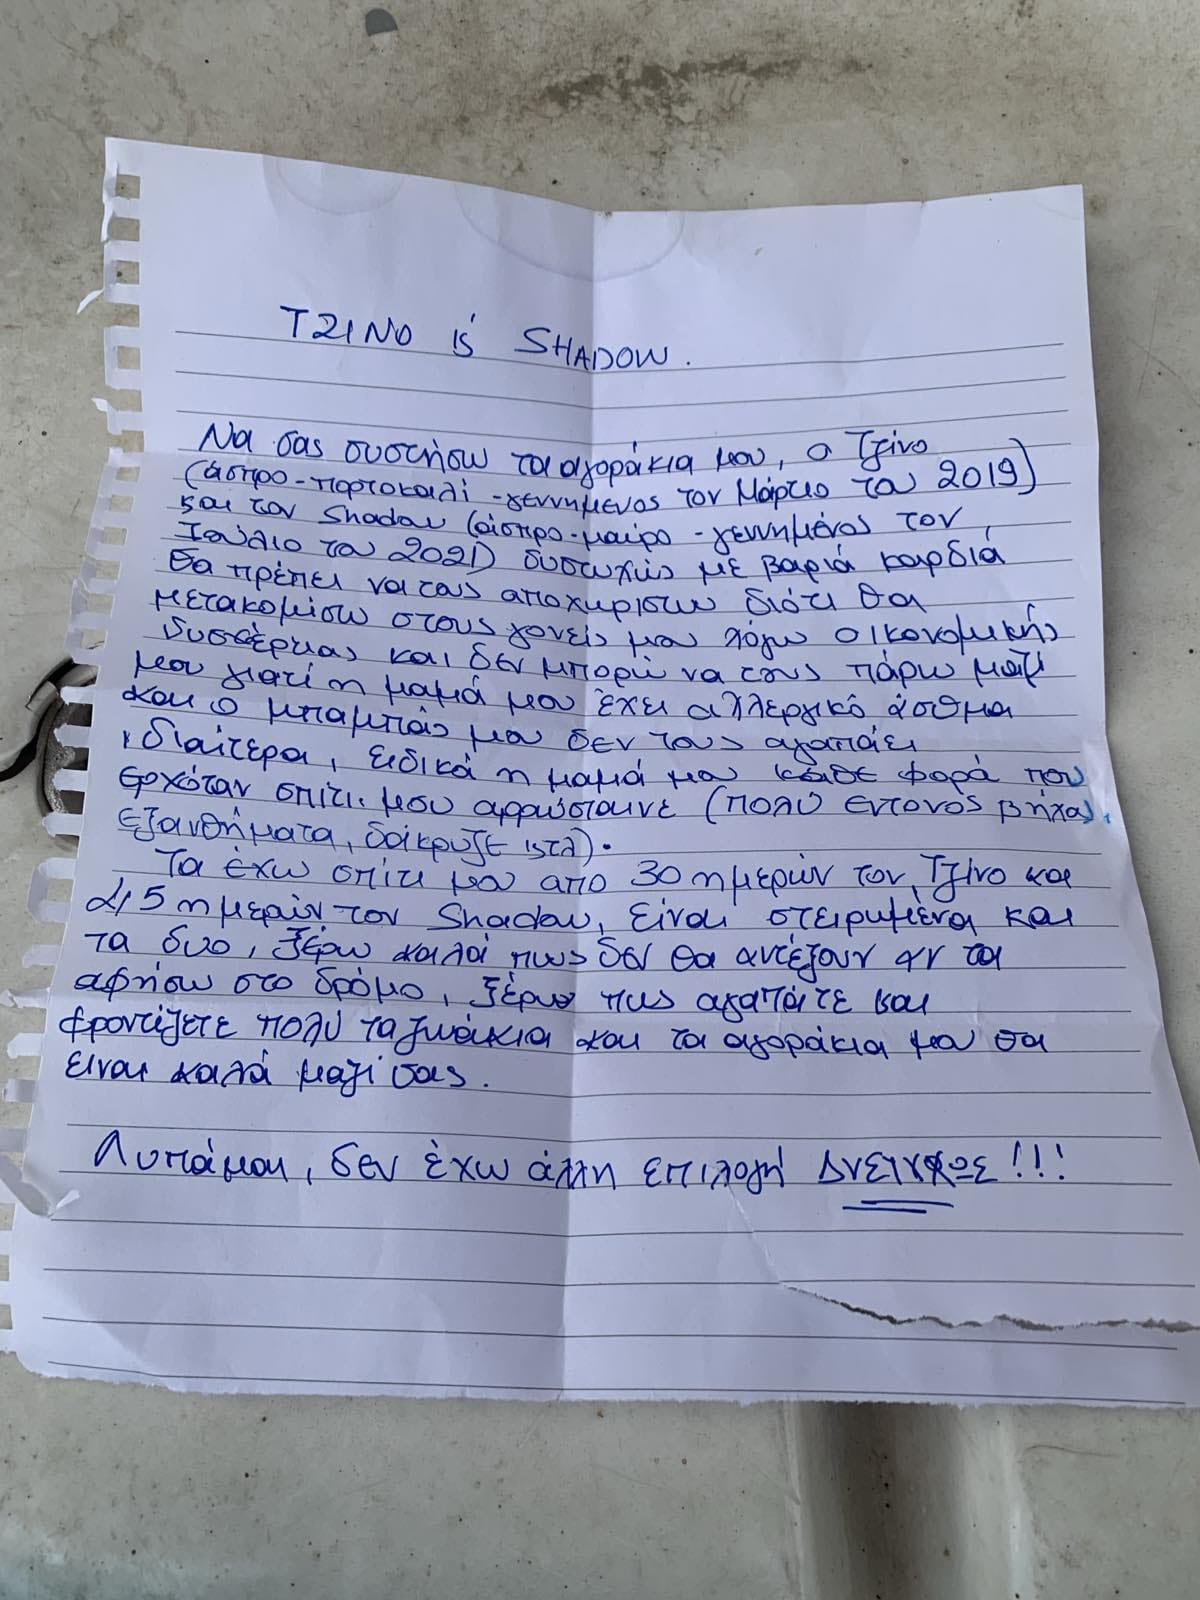 ΤΖΙΝΟ κ' SHADOW.
Να σας συστήσω τα αγοράκια μου, ο Τζίνο
(άσπρο-πορτοκαλί-γεννημένος τον Μάρτιο του 2019)
και τον Shadow (άσπρο-μαύρο-γεννημένος τον
Ιούλιο του 2021) δυστυχώς με βαριά καρδιά
θα πρέπει να τους αποχωριστώ διότι θα
μετακομίσω στους γονείς μου λόγω οικονομικής
δυσχέρειας και δεν μπορώ να τους πάρω μαζί
μου γιατί η μαμά μου έχει αλλεργικό άσθμα
και ο μπαμπάς μου δεν τους αγαπάει
ιδιαίτερα, ειδικά η μαμά μου κάθε φορά που
ερχόταν σπίτι μου αρρώσταινε (πολύ έντονος βήχας,
εξανθήματα, δάκρυζε κτλ).
Τα έχω σπίτι μου απο 30 ημερών τον Τζίνο και
45 ημερών τον Shadow, είναι στειρωμένα και
τα δυο, ξέρω καλά πως δεν θα αντέξουν αν τα
αφήσω στο δρόμο, ξέρω πως αγαπάτε και
φροντίζετε πολύ τα ζωάκια και τα αγοράκια μου θα
είναι καλά μαζί σας.
Λυπάμαι, δεν έχω άλλη επιλογή ΔΥΣΤΥΧΩΣ!!!